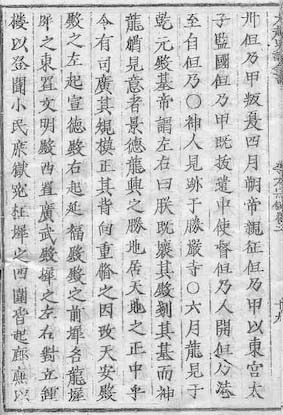 卅但乃甲叛夏四月朔帝親征但乃甲以東宮太
子監國但乃甲既拔遣中使督但乃人開但乃港
至自但乃○神人見跡于勝嚴寺○六月龍見于
乾元殿基帝謂左右曰朕既壞其殿剗其基而神
龍猶見意者景德龍興之勝地居天地之正中乎
今有司廣其規模正其背向重脩之因改天安殿
殿之左起宣德殿右起延福殿殿之前墀名龍墀
墀之東置文明殿西置廣武殿墀之左右對立鍾
樓以登聞小民庶獄寃枉墀之四圍皆起廊廡以